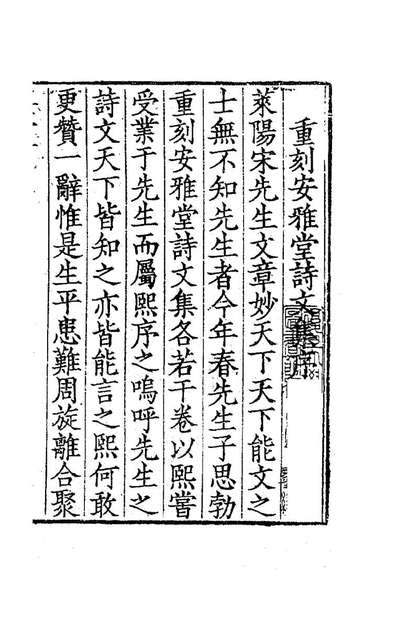 重刻安雅堂詩文集序
萊陽宋先生文章妙天下天下能文之
士無不知先生者今年春先生子思勃
重刻安雅堂詩文集各若干卷以熙嘗
受業于先生而屬熙序之嗚呼先生之
詩文天下皆知之亦皆能言之熙何敢
更贊一辭惟是生平患難周旋離合聚